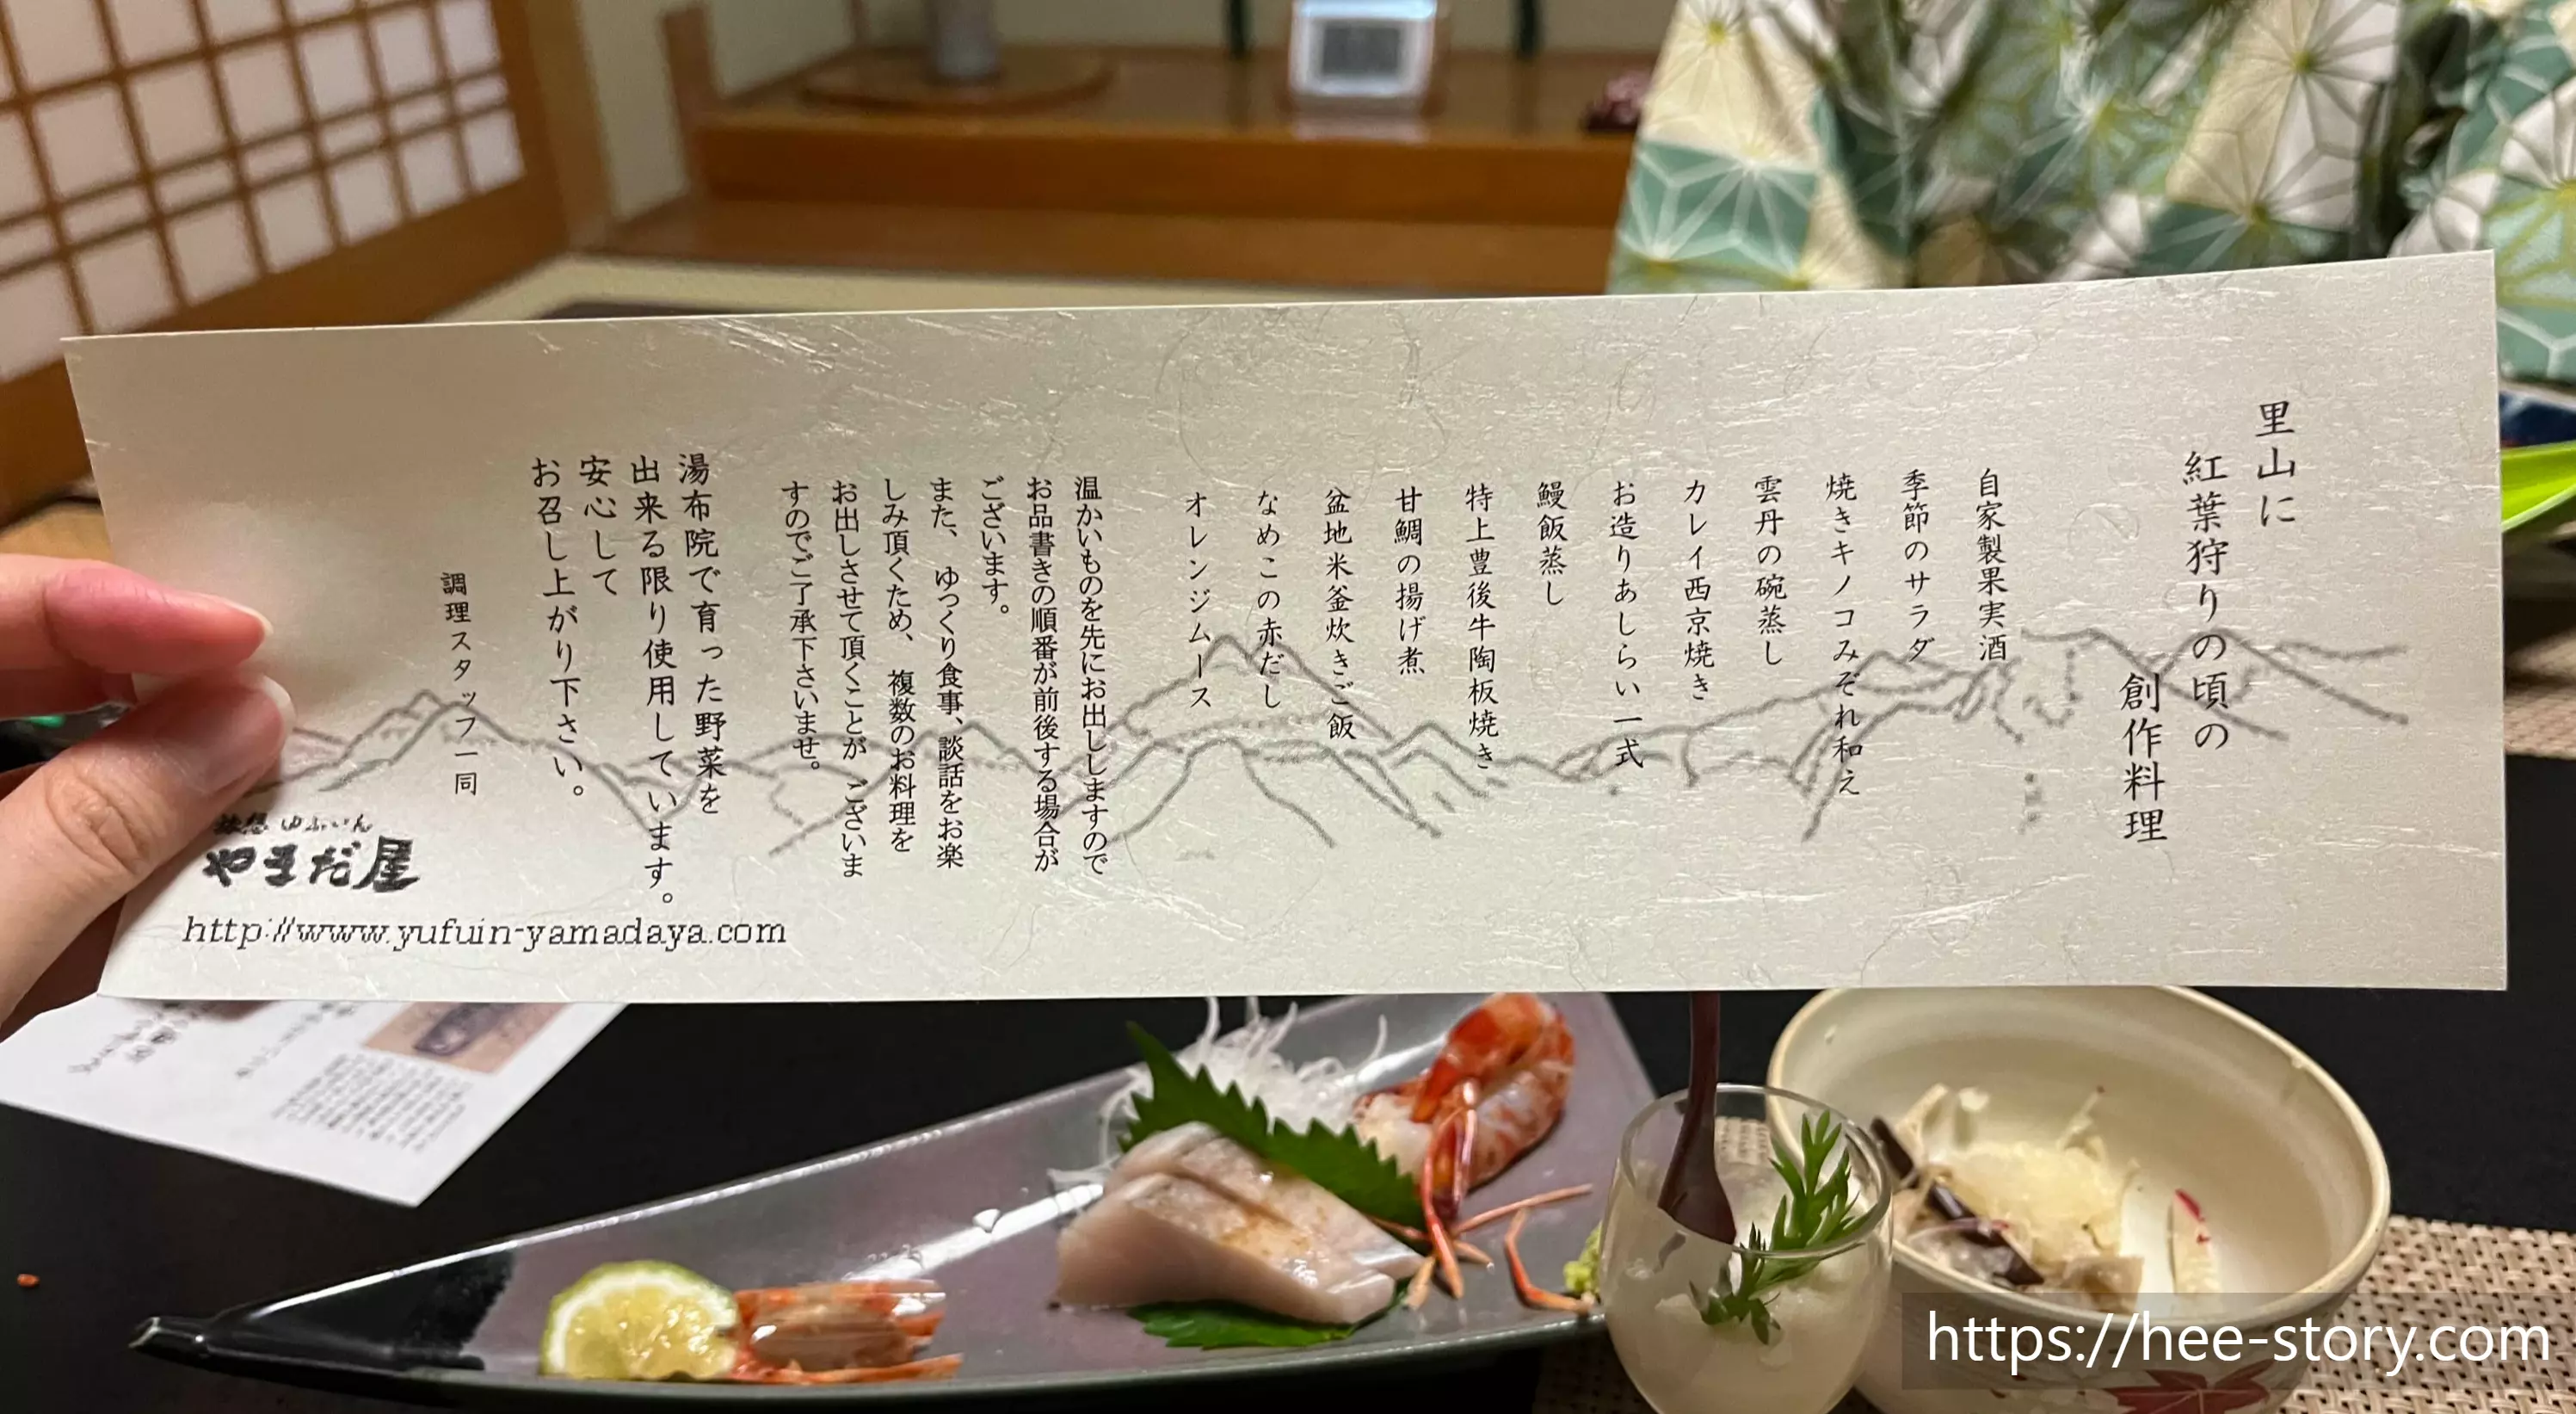 里山に
紅葉狩りの頃の
創作料理
自家製果実酒
季節のサラダ
焼きキノコみぞれ和え
雲丹の碗蒸し
カレイ西京焼き
お造りあしらい一式
鰻飯蒸し
特上豊後牛陶板焼き
甘鯛の揚げ煮
盆地米釜炊きご飯
なめこの赤だし
オレンジムース
温かいものを先にお出ししますので
お品書きの順番が前後する場合が
ございます。
また、ゆっくり食事、談話をお楽
しみ頂くため、複数のお料理を
お出しさせて頂くことが ございま
すのでご了承下さいませ。
湯布院で育った野菜を
出来る限り使用しています。
安心して
お召し上がり下さい。
調理スタッフ一同
ゆふいん
やまだ屋
http://www.yufuin-yamadaya.com
https://hee-story.com